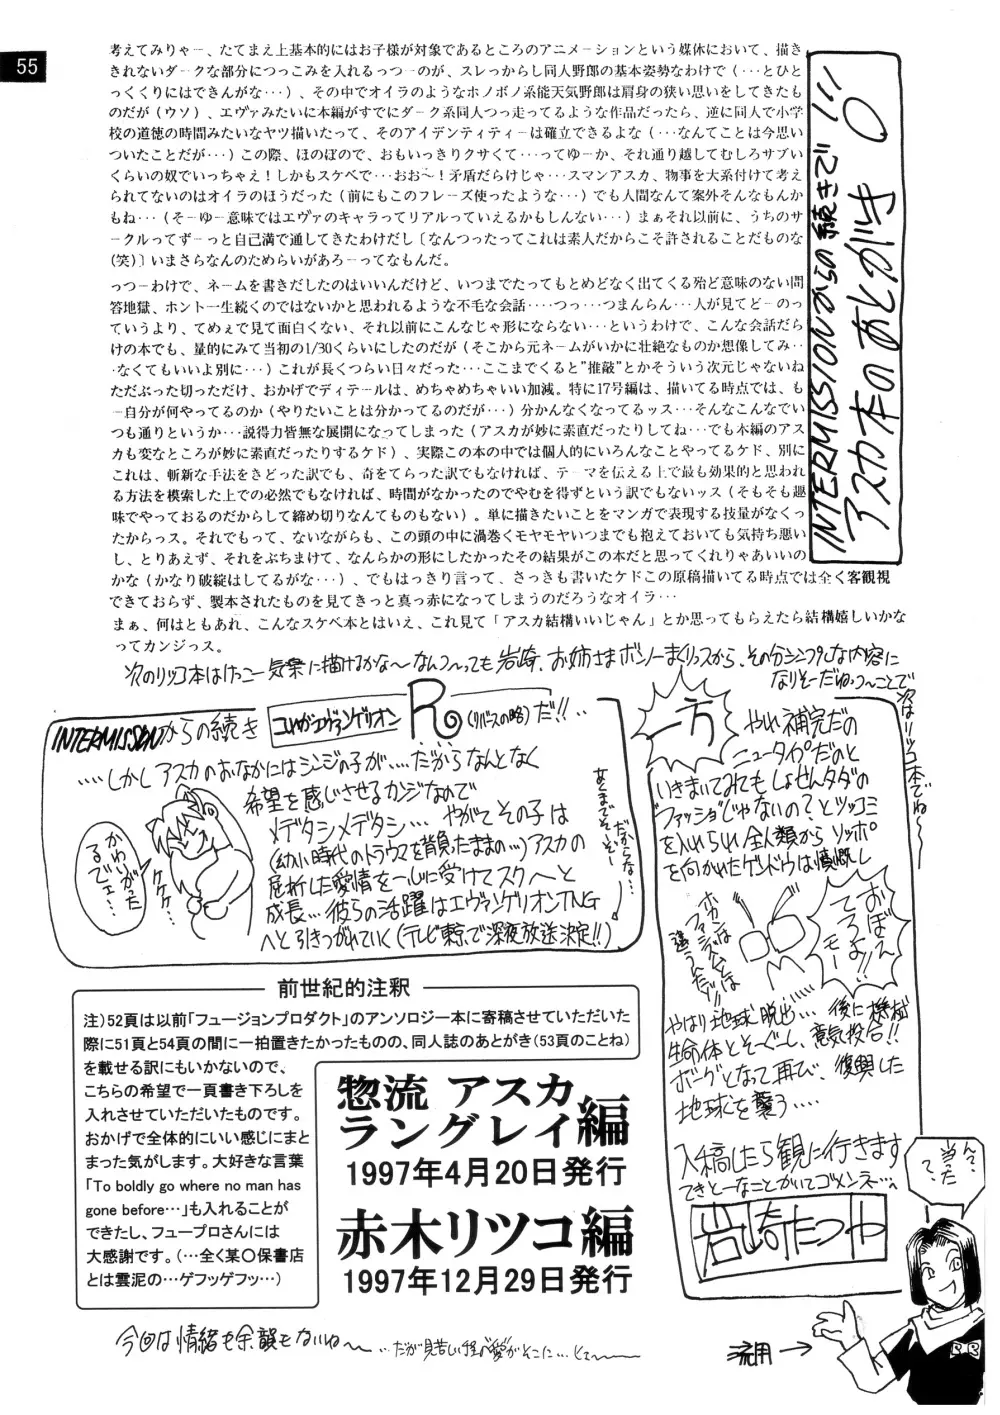 55
INTERMISSIONからの続きで…
アスカ本のあとがき
考えてみりゃー、たてまえ上基本的にはお子様が対象であるところのアニメーションという媒体において、描き
きれないダークな部分につっこみを入れるっつーのが、スレっからし同人野郎の基本姿勢なわけで(…とひと
っくくりにはできんがな…)、その中でオイラのようなホノボノ系能天気野郎は肩身の狭い思いをしてきたも
のだが(ウソ)、エヴァみたいに本編がすでにダーク系同人つっ走ってるような作品だったら、逆に同人で小学
校の道徳の時間みたいなヤツ描いたって、そのアイデンティティーは確立できるよな(…なんてことは今思い
ついたことだが…)この際、ほのぼので、おもいっきりクサくて…ってゆーか、それ通り越してむしろサブい
くらいの奴でいっちゃえ!しかもスケベで…おお〜!矛盾だらけじゃ…スマンアスカ、物事を大系付けて考え
られてないのはオイラのほうだった(前にもこのフレーズ使ったような…)でも人間なんて案外そんなもんか
もね…(そーゆー意味ではエヴァのキャラってリアルっていえるかもしんない…)まぁそれ以前に、うちのサ
ークルってずーっと自己満で通してきたわけだし〔なんつったってこれは素人だからこそ許されることだものな
(笑)〕いまさらなんのためらいがあろーってなもんだ。
っつーわけで、ネームを書きだしたのはいいんだけど、いつまでたってもとめどなく出てくる殆ど意味のない問
答地獄、ホント一生続くのではないかと思われるような不毛な会話‥‥つっ…つまんらん…人が見てどーのっ
ていうより、てめぇで見て面白くない、それ以前にこんなじゃ形にならない…というわけで、こんな会話だら
けの本でも、量的にみて当初の1/30くらいにしたのだが(そこから元ネームがいかに壮絶なものか想像してみ‥
‥なくてもいいよ別に…)これが長くつらい日々だった…ここまでくると"推敲"とかそういう次元じゃないね
ただぶった切っただけ、おかげでディテールは、めちゃめちゃいい加減。特に17号編は、描いてる時点では、も
ー自分が何やってるのか(やりたいことは分かってるのだが…)分かんなくなってるッス…そんなこんなでい
つも通りというか…説得力皆無な展開になってしまった(アスカが妙に素直だったりしてね…でも本編のアス
カも変なところが妙に素直だったりするケド)、実際この本の中では個人的にいろんなことやってるケド、別に
これは、斬新な手法をきどった訳でも、奇をてらった訳でもなければ、テーマを伝える上で最も効果的と思われ
る方法を模索した上での必然でもなければ、時間がなかったのでやむを得ずという訳でもないッス(そもそも趣
味でやっておるのだからして締め切りなんてものもない)。単に描きたいことをマンガで表現する技量がなくっ
たからっス。それでもって、ないながらも、この頭の中に渦巻くモヤモヤいつまでも抱えておいても気持ち悪い
し、とりあえず、それをぶちまけて、なんらかの形にしたかったその結果がこの本だと思ってくれりゃあいいの
かな(かなり破綻はしてるがな…)、でもはっきり言って、さっきも書いたケドこの原稿描いてる時点では全く客観視
できておらず、製本されたものを見てきっと真っ赤になってしまうのだろうなオイラ…
まぁ、何はともあれ、こんなスケベ本とはいえ、これ見て「アスカ結構いいじゃん」とか思ってもらえたら結構嬉しいかな
ってカンジっス。
次のリッコ本はけっこー気楽に描けるかな〜なんつ〜っても岩崎、お姉さまボンノーまくりっスから、その分シンプルな内容に
なりそーだねっつ〜ことで
次はリツコ本でね〜
INTERMISSIONからの続き
コレがエヴァンゲリオン
R(リバースの略)だ!!‥
‥‥しかしアスカのおなかにはシンジの子が‥‥だからなんとなく
希望を感じさせるカンジなので
メデタシメデタシ… やがてその子は
(幼い時代のトラウマを背負ったままの…)アスカの
屈折した愛情を一心に受けてスクスクと
成長…彼らの活躍はエヴァンゲリオンTNG
へと引きつがれていく(テレビ東京で深夜放送決定!!)
だからな…
あくまでそーぞー
かわいがった
るでェ…
ケケケ…
一方
やれ補完だの
ニュータイプだのと
いきまいてみてもしょせんタダの
ファッショじゃないの?とツッコミ
を入れられ全人類からソッポ
を向かれたゲンドウは憤慨し
おぼえ
てろよ!!
モー
ホカンは
ファシズムとは
違うんだゾ!!
やはり地球脱出… 後に機械
生命体とそーぐーし、意気投合!!
ボーグとなって再び、復興した
地球を襲う‥‥
入稿したら観に行きます
てきとーなことかいてゴメンネ…
岩崎たつや
んで、
当った
て、
流用→
前世紀的注釈
注)52頁は以前「フュージョンプロダクト」のアンソロジー本に寄稿させていただいた
際に51頁と54頁の間に一拍置きたかったものの、同人誌のあとがき(53頁のことね)
を載せる訳にもいかないので、
こちらの希望で一頁書き下ろしを
入れさせていただいたものです。
おかげで全体的にいい感じにまと
まった気がします。大好きな言葉
「To boldly go where no man has
gone before…」も入れることが
できたし、フュープロさんには
大感謝です。(…全く某〇保書店
とは雲泥の…ゲフッゲフッ…)
惣流 アスカ
ラングレイ編
1997年4月20日発行
赤木リツコ編
1997年12月29日発行
今回は情緒も余韻もないね〜 …だが見苦しい程の"愛"がそこに…とぅ〜